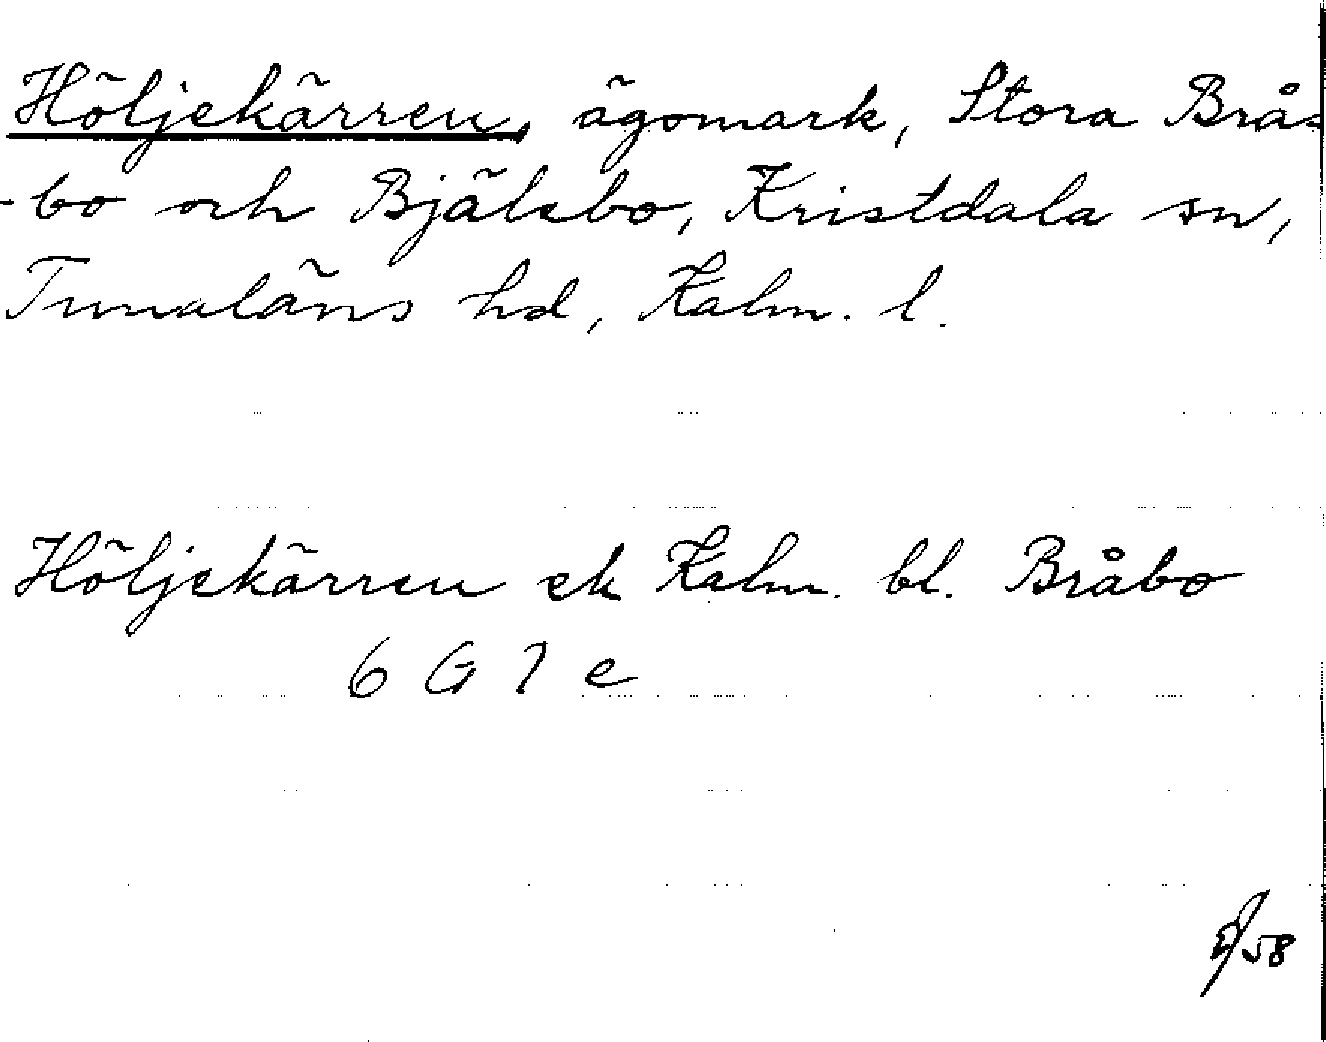 Höljekärren, ägomark, Stora Brå-
-bo och Bjälebo, Kristdala sn,
Tunaläns hd, Kalm. l.
Höljekärren ek Kalm. bl. Bråbo
6 G 7 e
/58